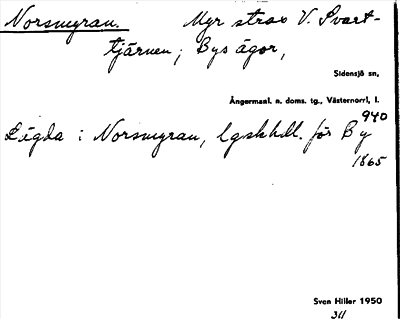 Norsmyran. Myr strax V. Svart-
tjärnen; Bys ägor,
Sidensjö sn,
Ångermanl. n. doms. tg., Västernorrl. l.
940
Lägda i Norsmyran, lgskhdl. för By
1865
Sven Hiller 1950
311